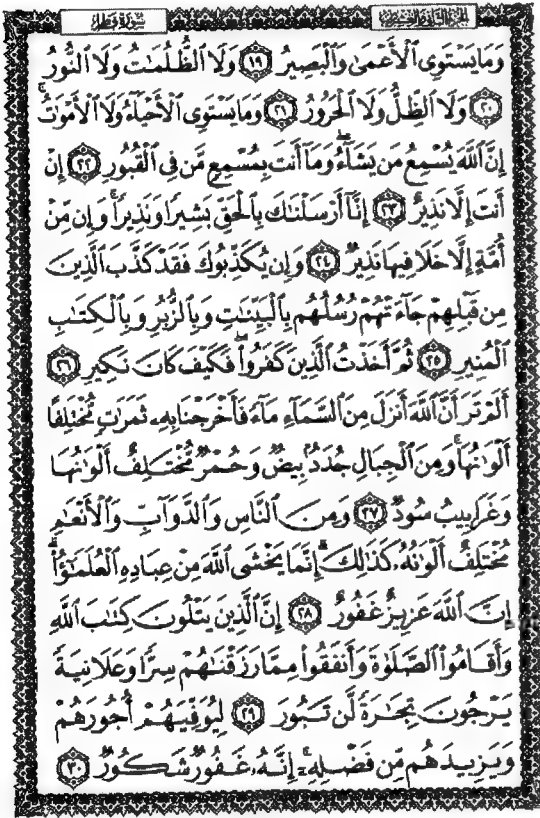 سُورَةُ فَاطِرٍ الجُزْءُ الثَّانِي وَالعِشْرُونَ
وَمَا يَسْتَوِى ٱلْأَعْمَىٰ وَٱلْبَصِيرُ ١٩ وَلَا ٱلظُّلُمَٰتُ وَلَا ٱلنُّورُ
٢٠ وَلَا ٱلظِّلُّ وَلَا ٱلْحَرُورُ ٢١ وَمَا يَسْتَوِى ٱلْأَحْيَآءُ وَلَا ٱلْأَمْوَٰتُ ۚ
إِنَّ ٱللَّهَ يُسْمِعُ مَن يَشَآءُ ۖ وَمَآ أَنتَ بِمُسْمِعٍ مَّن فِى ٱلْقُبُورِ ٢٢ إِنْ
أَنتَ إِلَّا نَذِيرٌ ٢٣ إِنَّآ أَرْسَلْنَٰكَ بِٱلْحَقِّ بَشِيرًا وَنَذِيرًا ۚ وَإِن مِّنْ
أُمَّةٍ إِلَّا خَلَا فِيهَا نَذِيرٌ ٢٤ وَإِن يُكَذِّبُوكَ فَقَدْ كَذَّبَ ٱلَّذِينَ
مِن قَبْلِهِمْ جَآءَتْهُمْ رُسُلُهُم بِٱلْبَيِّنَٰتِ وَبِٱلزُّبُرِ وَبِٱلْكِتَٰبِ
ٱلْمُنِيرِ ٢٥ ثُمَّ أَخَذْتُ ٱلَّذِينَ كَفَرُوا۟ ۖ فَكَيْفَ كَانَ نَكِيرِ ٢٦
أَلَمْ تَرَ أَنَّ ٱللَّهَ أَنزَلَ مِنَ ٱلسَّمَآءِ مَآءً فَأَخْرَجْنَا بِهِۦ ثَمَرَٰتٍ مُّخْتَلِفًا
أَلْوَٰنُهَا ۚ وَمِنَ ٱلْجِبَالِ جُدَدٌۢ بِيضٌ وَحُمْرٌ مُّخْتَلِفٌ أَلْوَٰنُهَا
وَغَرَابِيبُ سُودٌ ٢٧ وَمِنَ ٱلنَّاسِ وَٱلدَّوَآبِّ وَٱلْأَنْعَٰمِ
مُخْتَلِفٌ أَلْوَٰنُهُۥ كَذَٰلِكَ ۗ إِنَّمَا يَخْشَى ٱللَّهَ مِنْ عِبَادِهِ ٱلْعُلَمَٰٓؤُا۟ ۗ
إِنَّ ٱللَّهَ عَزِيزٌ غَفُورٌ ٢٨ إِنَّ ٱلَّذِينَ يَتْلُونَ كِتَٰبَ ٱللَّهِ
وَأَقَامُوا۟ ٱلصَّلَوٰةَ وَأَنفَقُوا۟ مِمَّا رَزَقْنَٰهُمْ سِرًّا وَعَلَانِيَةً
يَرْجُونَ تِجَٰرَةً لَّن تَبُورَ ٢٩ لِيُوَفِّيَهُمْ أُجُورَهُمْ
وَيَزِيدَهُم مِّن فَضْلِهِۦٓ ۚ إِنَّهُۥ غَفُورٌ شَكُورٌ ٣٠